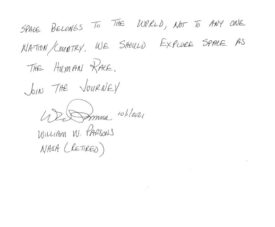 SPACE BELONGS TO THE WORLD, NOT TO ANY ONE
NATION/COUNTRY. WE SHOULD EXPLORE SPACE AS
THE HUMAN RACE.
JOIN THE JOURNEY
10/1/2021
WILLIAM W. PARSONS
NASA (RETIRED)